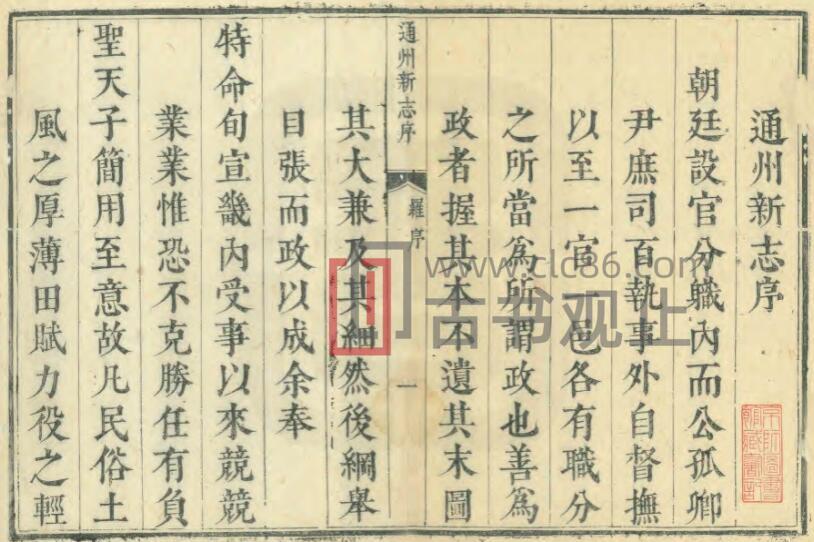 通州新志序
朝廷設官分職內而公孤卿
尹庶司百執事外自督撫
以至一官一邑各有職分
之所當為所謂政也善為
政者握其本不遺其末圖
其大兼及其細然後綱舉
目張而政以成余奉
特命旬宣畿內受事以來競競
業業惟恐不克勝任有負
聖天子簡用至意故凡民俗土
風之厚薄田賦力役之輕
通州新志序
羅序
一
www.clc86.com
古书观止
京師圖書
館藏書記